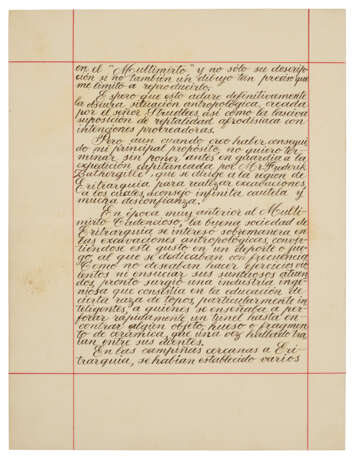 en el "Multimirto" y no sólo su descrip-
ción si no también un dibujo tan preciso que
me limito a reproducirlo.
Espero que esto aclare definitivamente
la obscura situación antropológica, creada
por el señor Strudlees así como la lasciva
suposición de reptalidad afrodisíaca con
intenciones procreadoras.
Pero aún cuando creo haber consegui-
do mi principal propósito, no quiero ter-
minar sin poner antes en guardia a la
expedición capitaneada por Mr Frederik
que se dirige a la región de
Eritrarquia para realizar excavaciones,
a los cuales aconsejo infinita cautela y
mucha desconfianza.
En época muy anterior al Multi-
mirto Cadencioso, la buena sociedad de
Eritrarquia se interesó sobremanera en
las excavaciones antropológicas convir-
tiéndose este gusto en un deporte o fue-
go, al que se dedicaban con frecuencia
Como no deseaban hacer ejercicios vio-
lentos ni ensuciar sus suntuosos atuen-
dos, pronto surgió una industria inge-
niosa que consistía en la educación de
cierta raza de topos, particularmente in-
teligentes, a quienes se enseñaba a per-
forar rápidamente un tunel hasta en-
contrar algún objeto, hueso o fragmen-
to de cerámica, que una vez hallado tra-
ían entre sus dientes.
En las campiñas cercanas a Eri-
trarquia, se habían establecido varios